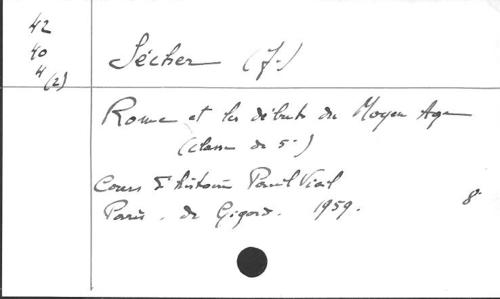 42
40
4(2)
Sécher (J.)
Rome et les débuts du Moyen Age
(classe de 5e)
Cours d'histoire Paul Viail
Paris. de Gigord. 1959. 8°